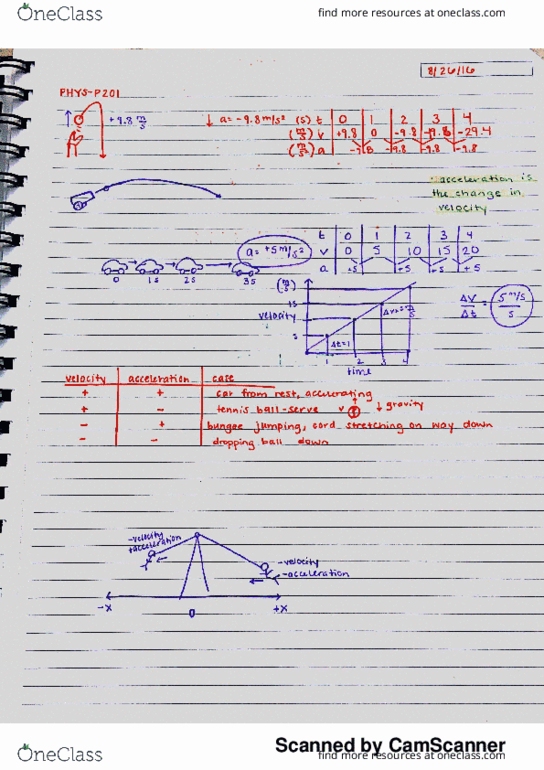 OneClass find more resources at oneclass.com
8/26/16
PHYS-P201
+9.8 m/s
↓ a= -9.8 m/s² (s) t 0 1 2 3 4
(m/s) v +9.8 0 -9.8 -19.6 -29.4
(m/s²) a -9.8 -9.8 -9.8 -9.8
acceleration is
the change in
velocity
t 0 1 2 3 4
v 0 5 10 15 20
a +5 +5 +5 +5
a= +5 m/s²
0 1s 2s 3s
(m/s)
15
velocity
5
Δt=1
1 2 3 4
time
ΔV/Δt = 5 m/s/s
velocity acceleration case
+ + car from rest, accelerating
+ - tennis ball-serve v ↓ gravity
- + bungee jumping, cord stretching on way down
- - dropping ball down
-velocity
+acceleration
-velocity
-acceleration
-x 0 +x
Scanned by CamScanner
OneClass find more resources at oneclass.com